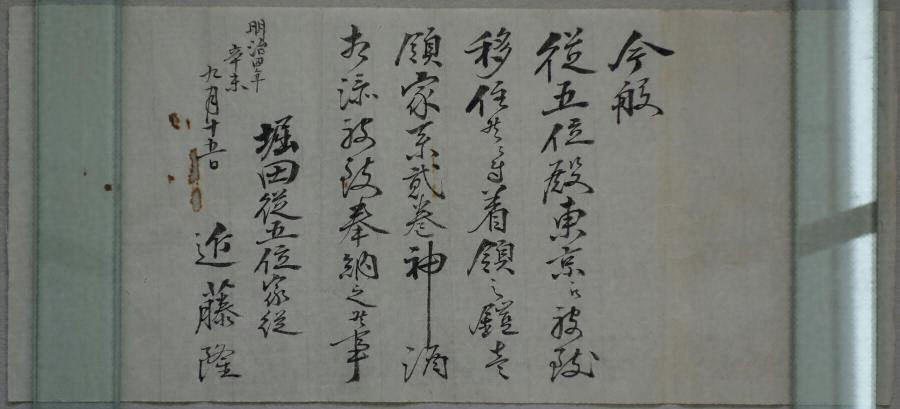 今般
従五位殿東京江被致
移住候ニ付着領之鎧壱
領家系貳巻神酒
相添被致奉納之候事
明治四年
辛未
九月十五日
堀田従五位家従
近藤隆